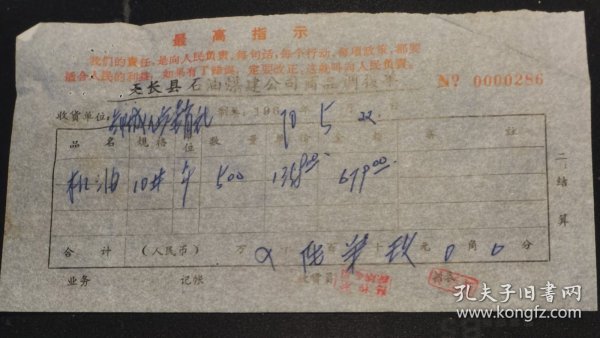 最高指示
我们的责任,是向人民负责,每句话,每个行动,每项政策,都要
适合人民的利益,如果有了错误,定要改正,这就叫向人民负责。
天长县石油煤建公司商品调拨单
№ 0000286
收货单位: 196 70 5 22
品名 规格 单位 数量 单价 金额 备註
机油 10# 斤 500 1358.00 679.00
合计 (人民币) 万 千 百 十 元 0 角 0 分
业务 记帐 收货员
二、结算
孔夫子旧书网
book.kongfz.com